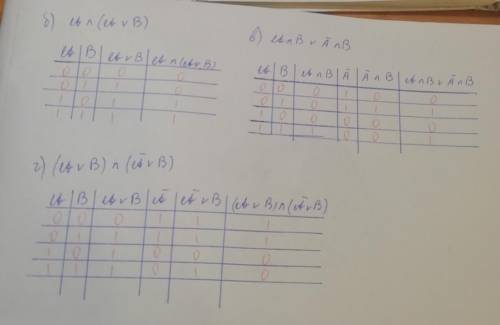 б) A ∧ (A ∨ B)
A B A ∨ B A ∧ (A ∨ B)
0 0 0 0
0 1 1 0
1 0 1 1
1 1 1 1
в) A ∧ B ∨ Ā ∧ B
A B A ∧ B Ā Ā ∧ B A ∧ B ∨ Ā ∧ B
0 0 0 1 0 0
0 1 0 1 1 1
1 0 0 0 0 0
1 1 1 0 0 1
г) (A ∨ B) ∧ (Ā ∨ B)
A B A ∨ B Ā Ā ∨ B (A ∨ B) ∧ (Ā ∨ B)
0 0 0 1 1 1
0 1 1 1 1 1
1 0 1 0 0 0
1 1 1 0 1 0